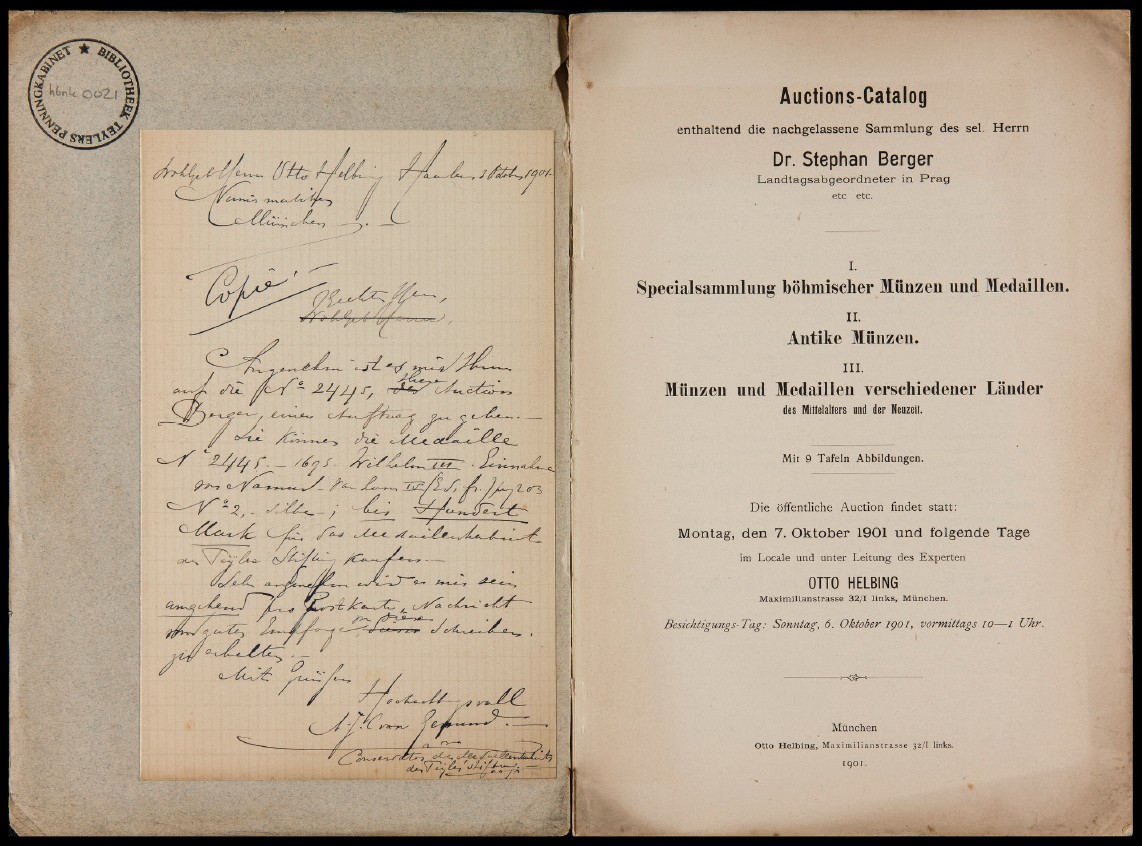 BIBLIOTHEEK TEYLERS PENNINGKABINET
hbnk 0021
Wohlgeb Herrn Otto Helbing Haarlem 3 October 1901.
Numismatiker
München
Copie!
Geehrter Herr,
Wohlgeb Herrn,
Angenehm ist es mir Ihnen
auf die No 2445, der Auction
Berger, einen Auftrag zu geben.—
Sie können die Medaille
No 2445.— 1695. Wilhelm III. Einnahme
von Namur. van Loon IV
No 2,- Silber; bis Hundert
Mark für das Medaillenkabinet
der Teyler Stiftung kaufen.—
Sehr angenehm wird es mir sein
umgehend pro Postkarte, Nachricht
guten Empfange Schreiben,
zu erhalten.—
Mit Grüssen
Hochachtungsvoll
Conservator des Medaillenkabinets
der Teyler Stiftung
Auctions-Catalog
enthaltend die nachgelassene Sammlung des sel. Herrn
Dr. Stephan Berger
Landtagsabgeordneter in Prag
etc etc.
I.
Specialsammlung böhmischer Münzen und Medaillen.
II.
Antike Münzen.
III.
Münzen und Medaillen verschiedener Länder
des Mittelalters und der Neuzeit.
Mit 9 Tafeln Abbildungen.
Die öffentliche Auction findet statt:
Montag, den 7. Oktober 1901 und folgende Tage
im Locale und unter Leitung des Experten
OTTO HELBING
Maximilianstrasse 32/I links, München.
Besichtigungs-Tag: Sonntag, 6. Oktober 1901, vormittags 10—1 Uhr.
München
Otto Helbing, Maximilianstrasse 32/I links.
1901.